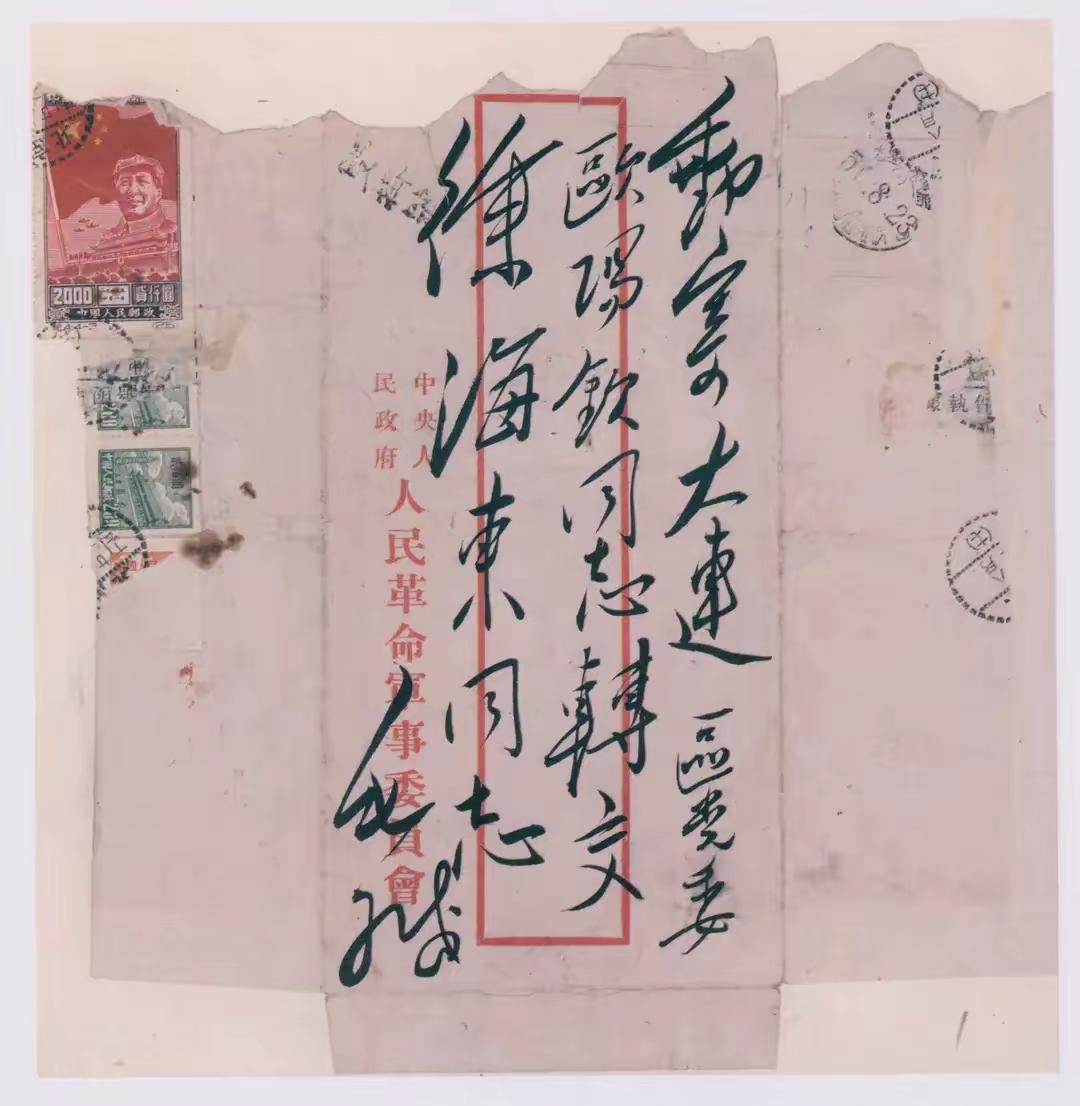 郵寄大連 區党委
歐陽欽同志轉交
徐海東同志
緘
中央人
民政府
人民革命軍事委員會
2000 貳仟圓
中國人民郵政
51.8.23